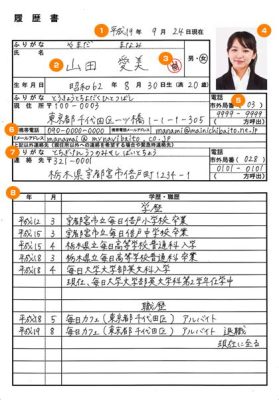 履 歴 書
① 平成19年 9月 24日現在
ふりがな やまだ まなみ
氏 名
② 山田 愛美 ③ 男・女 ④
生年月日 昭和62年 8月 30日生 (満 20歳)
ふりがな とうきょうとちよだくひとつばし
電話 ⑤
現住所 〒100-0003
市外局番( 03 )
東京都千代田区一ツ橋1-1-1-305
9999-9999
( 方呼出)
⑥ 携帯電話 090-0000-0000
ふりがな
⑦
電話
連絡先 〒321-0001
市外局番( 028 )
0101-0101
栃木県宇都宮市倍戸町1234-1
( 方呼出)
⑧ 年 月 学歴・職歴
学歴
平成12 3 宇都宮市立毎日倍戸小学校 卒業
平成15 3 宇都宮市立毎日倍戸中学校 卒業
平成15 4 栃木県立毎日高等学校普通科入学
平成18 3 栃木県立毎日高等学校普通科卒業
平成18 4 毎日大学文学部英文科入学
現在、毎日大学文学部英文科第2学年在学中
職歴
平成18 5 毎日カフェ(東京都千代田区) アルバイト
平成19 8 毎日カフェ(東京都千代田区) アルバイト 退職
現在に至る